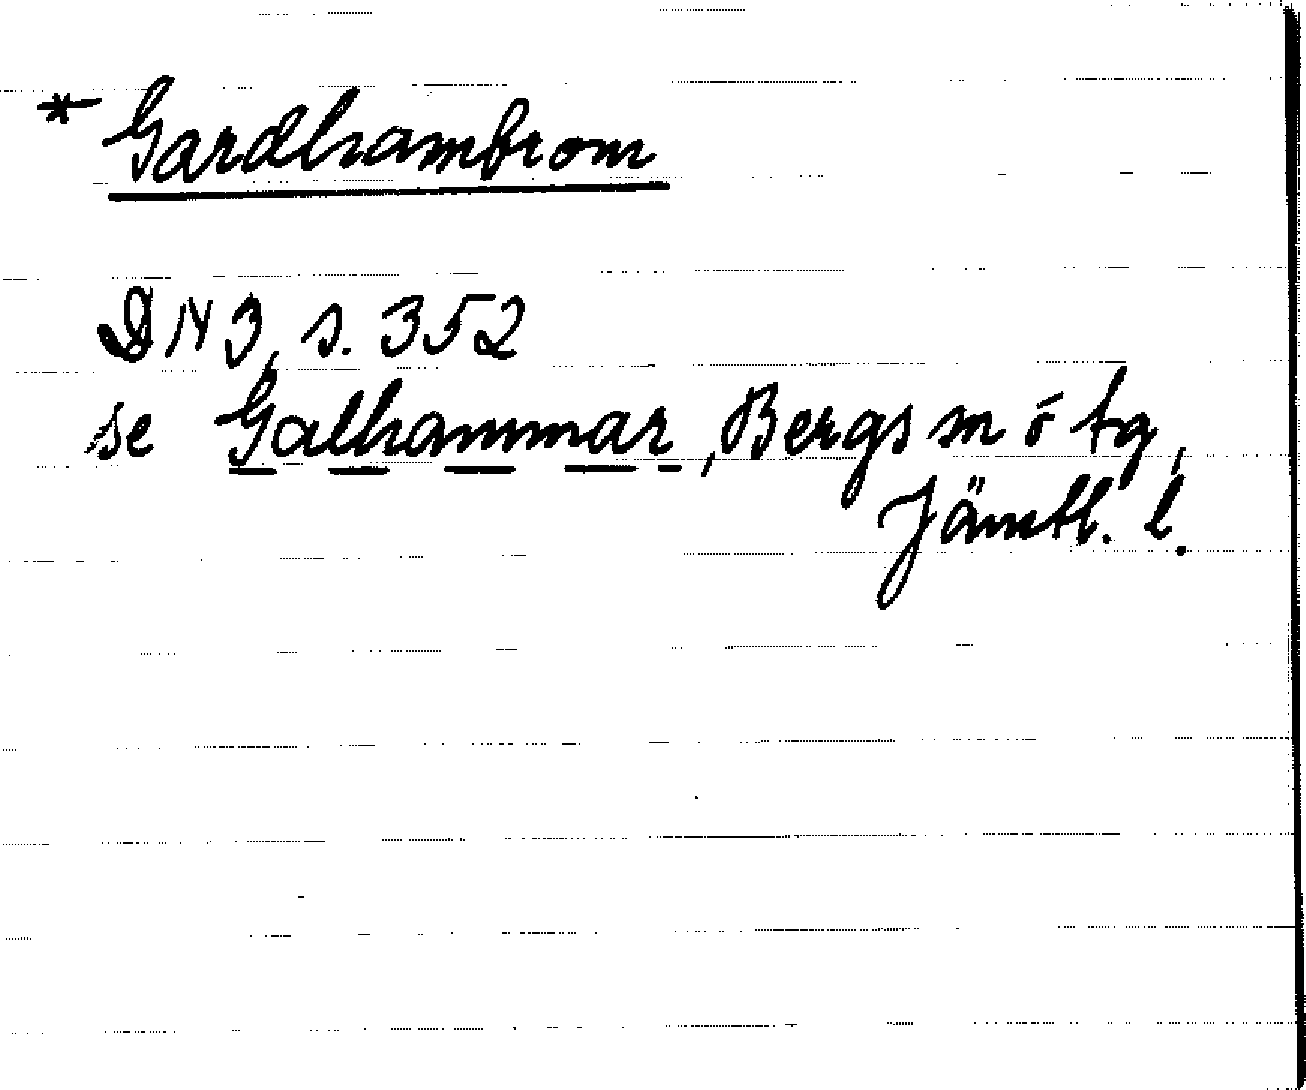 * Gardhambrom
DN 3, s. 352
se Galhammar, Bergs sn ö tg,
Jämtl. l.